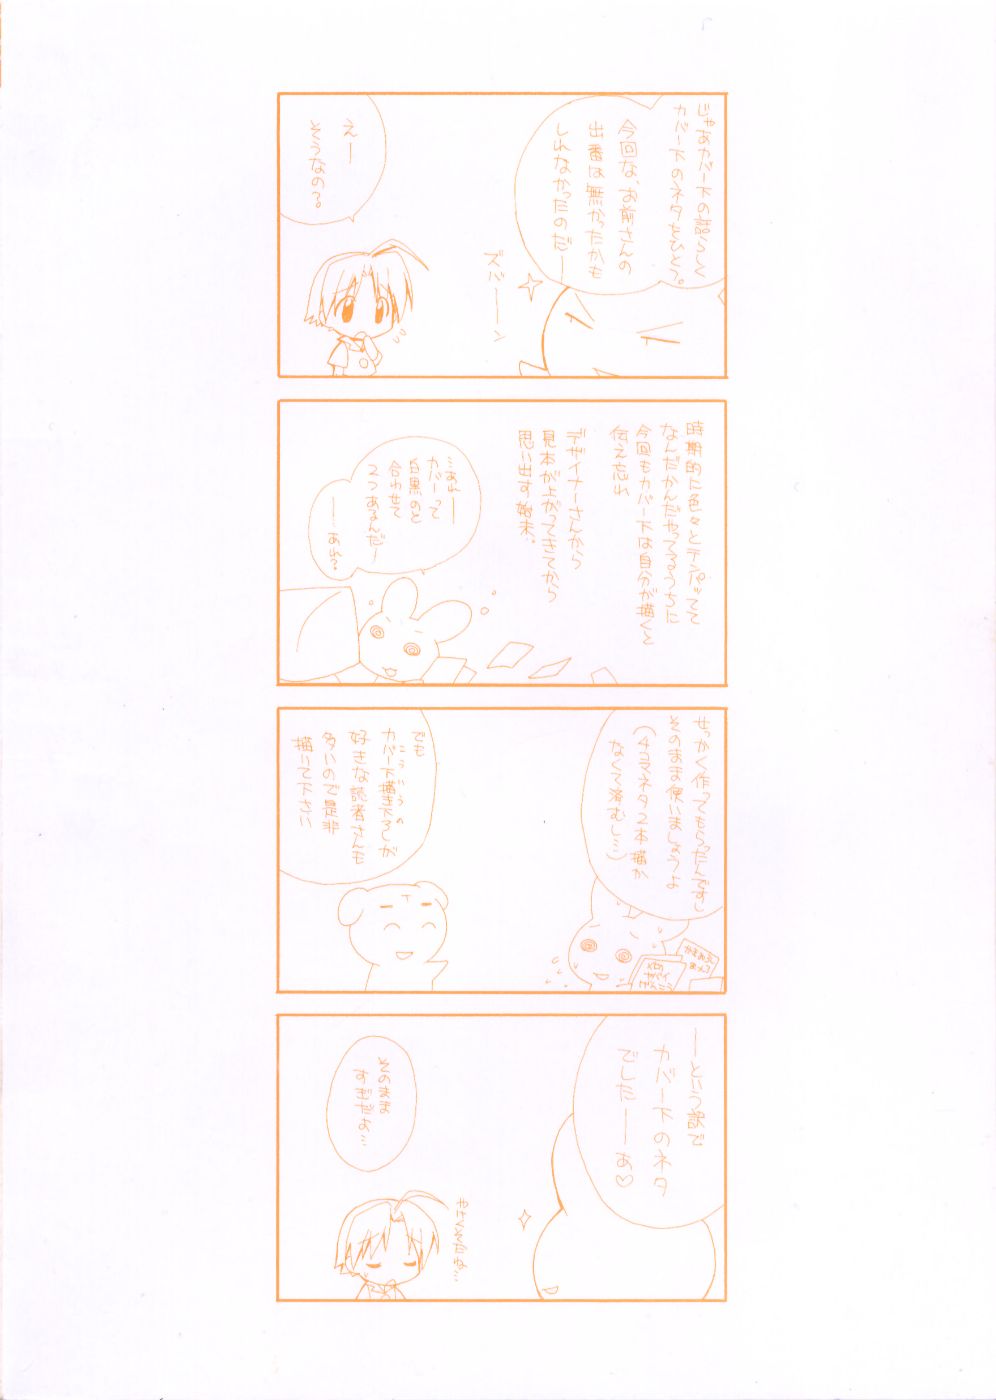 じゃあカバー下の話らしく
カバー下のネタをひとつ。
今回な、お前さんの
出番は無かったかも
しれなかったのだー
ズバーーーン
えー
そうなの?
時期的に色々とテンパッてて
なんだかんだやってるうちに
今回もカバー下は自分が描くと
伝え忘れ
デザイナーさんから
見本が上がってきてから
思い出す始末。
…あれー
カバーって
白黒のと
合わせて
2つあるんだー
——あれ?
せっかく作ってもらったんですし
そのまま使いましょうよ
(4コマネタ2本描か
なくて済むし…)
でも
こういうの
カバー下描き下ろしが
好きな読者さんも
多いので是非
描いて下さい
——という訳で
カバー下のネタ
でしたーーあ♡
そのまま
すぎだよ…